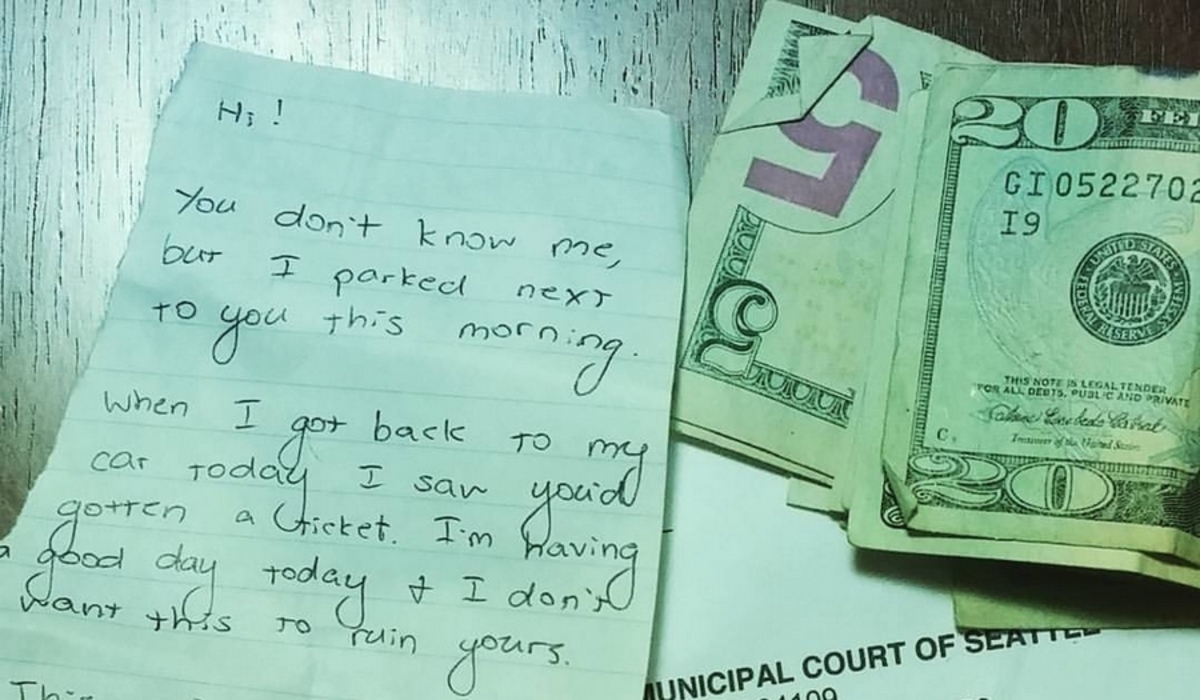 Hi!
You don't know me,
but I parked next
to you this morning.
When I got back to my
car today I saw you'd
gotten a ticket. I'm having
a good day today & I don't
want this to ruin yours.
This
5
5
20
FE
GI0522702
I9
FEDERAL RESERVE
UNITED STATES
THIS NOTE IS LEGAL TENDER
FOR ALL DEBTS, PUBLIC AND PRIVATE
Treasurer of the United States
20
MUNICIPAL COURT OF SEATTLE